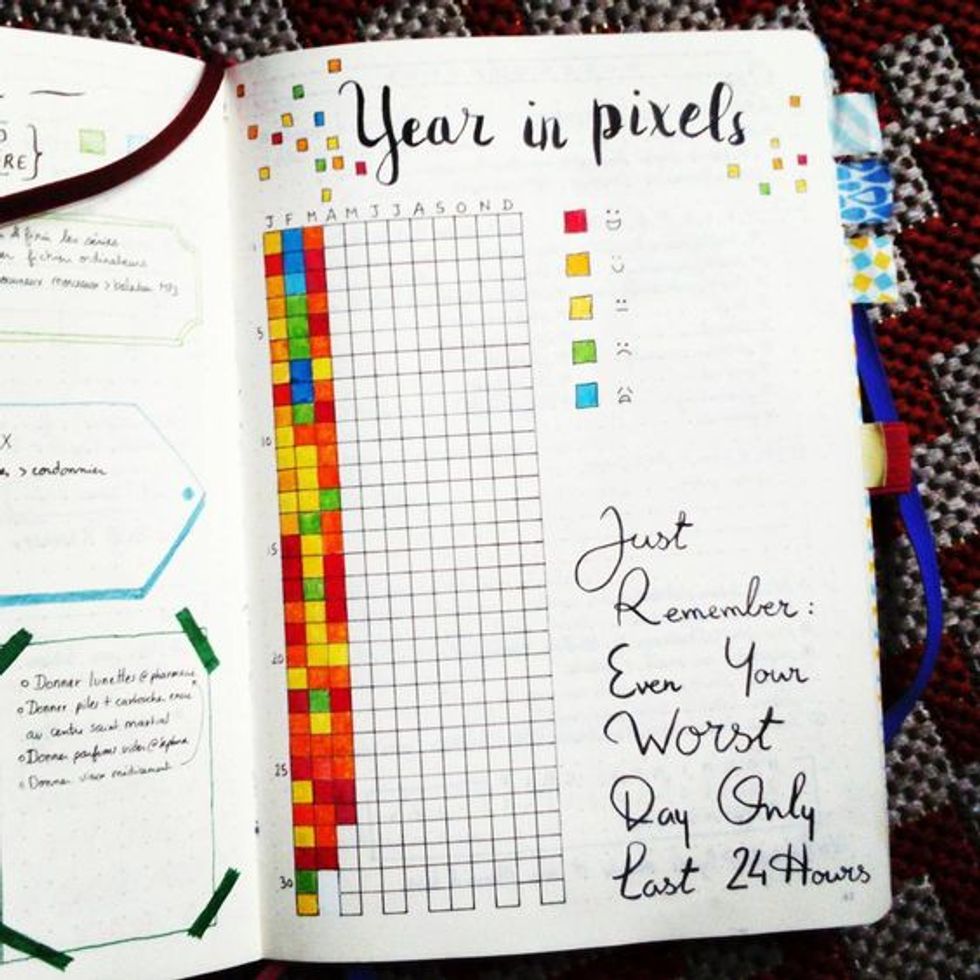 RE}
à finir les séries
fiction ordinateurs
morceaux > baladeur MP3
X
> cordonnier
o Donner lunettes @ pharmacie
o Donner piles + cartouche encre
au centre saint martial
o Donner parfums vides @ sephora
o Donner vieux médicament
Year in pixels
J F M A M J J A S O N D
1
5
10
15
20
25
30
Just
Remember:
Even Your
Worst
Day Only
Last 24 Hours